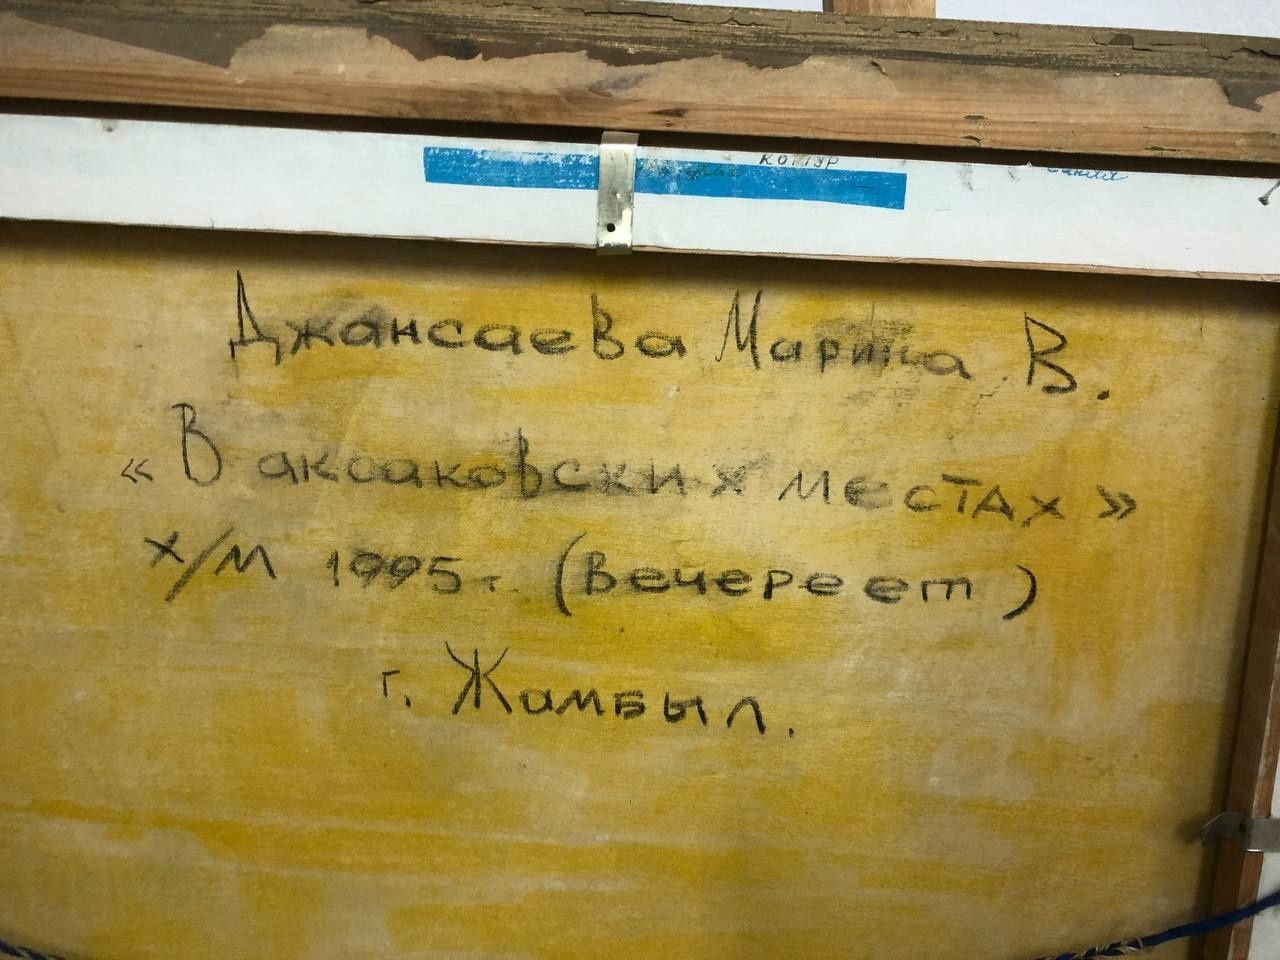 контур
синяя
Джансаева Марина В.
«В аксаковских местах»
х/м 1995 г. (вечереет)
г. Жамбыл.